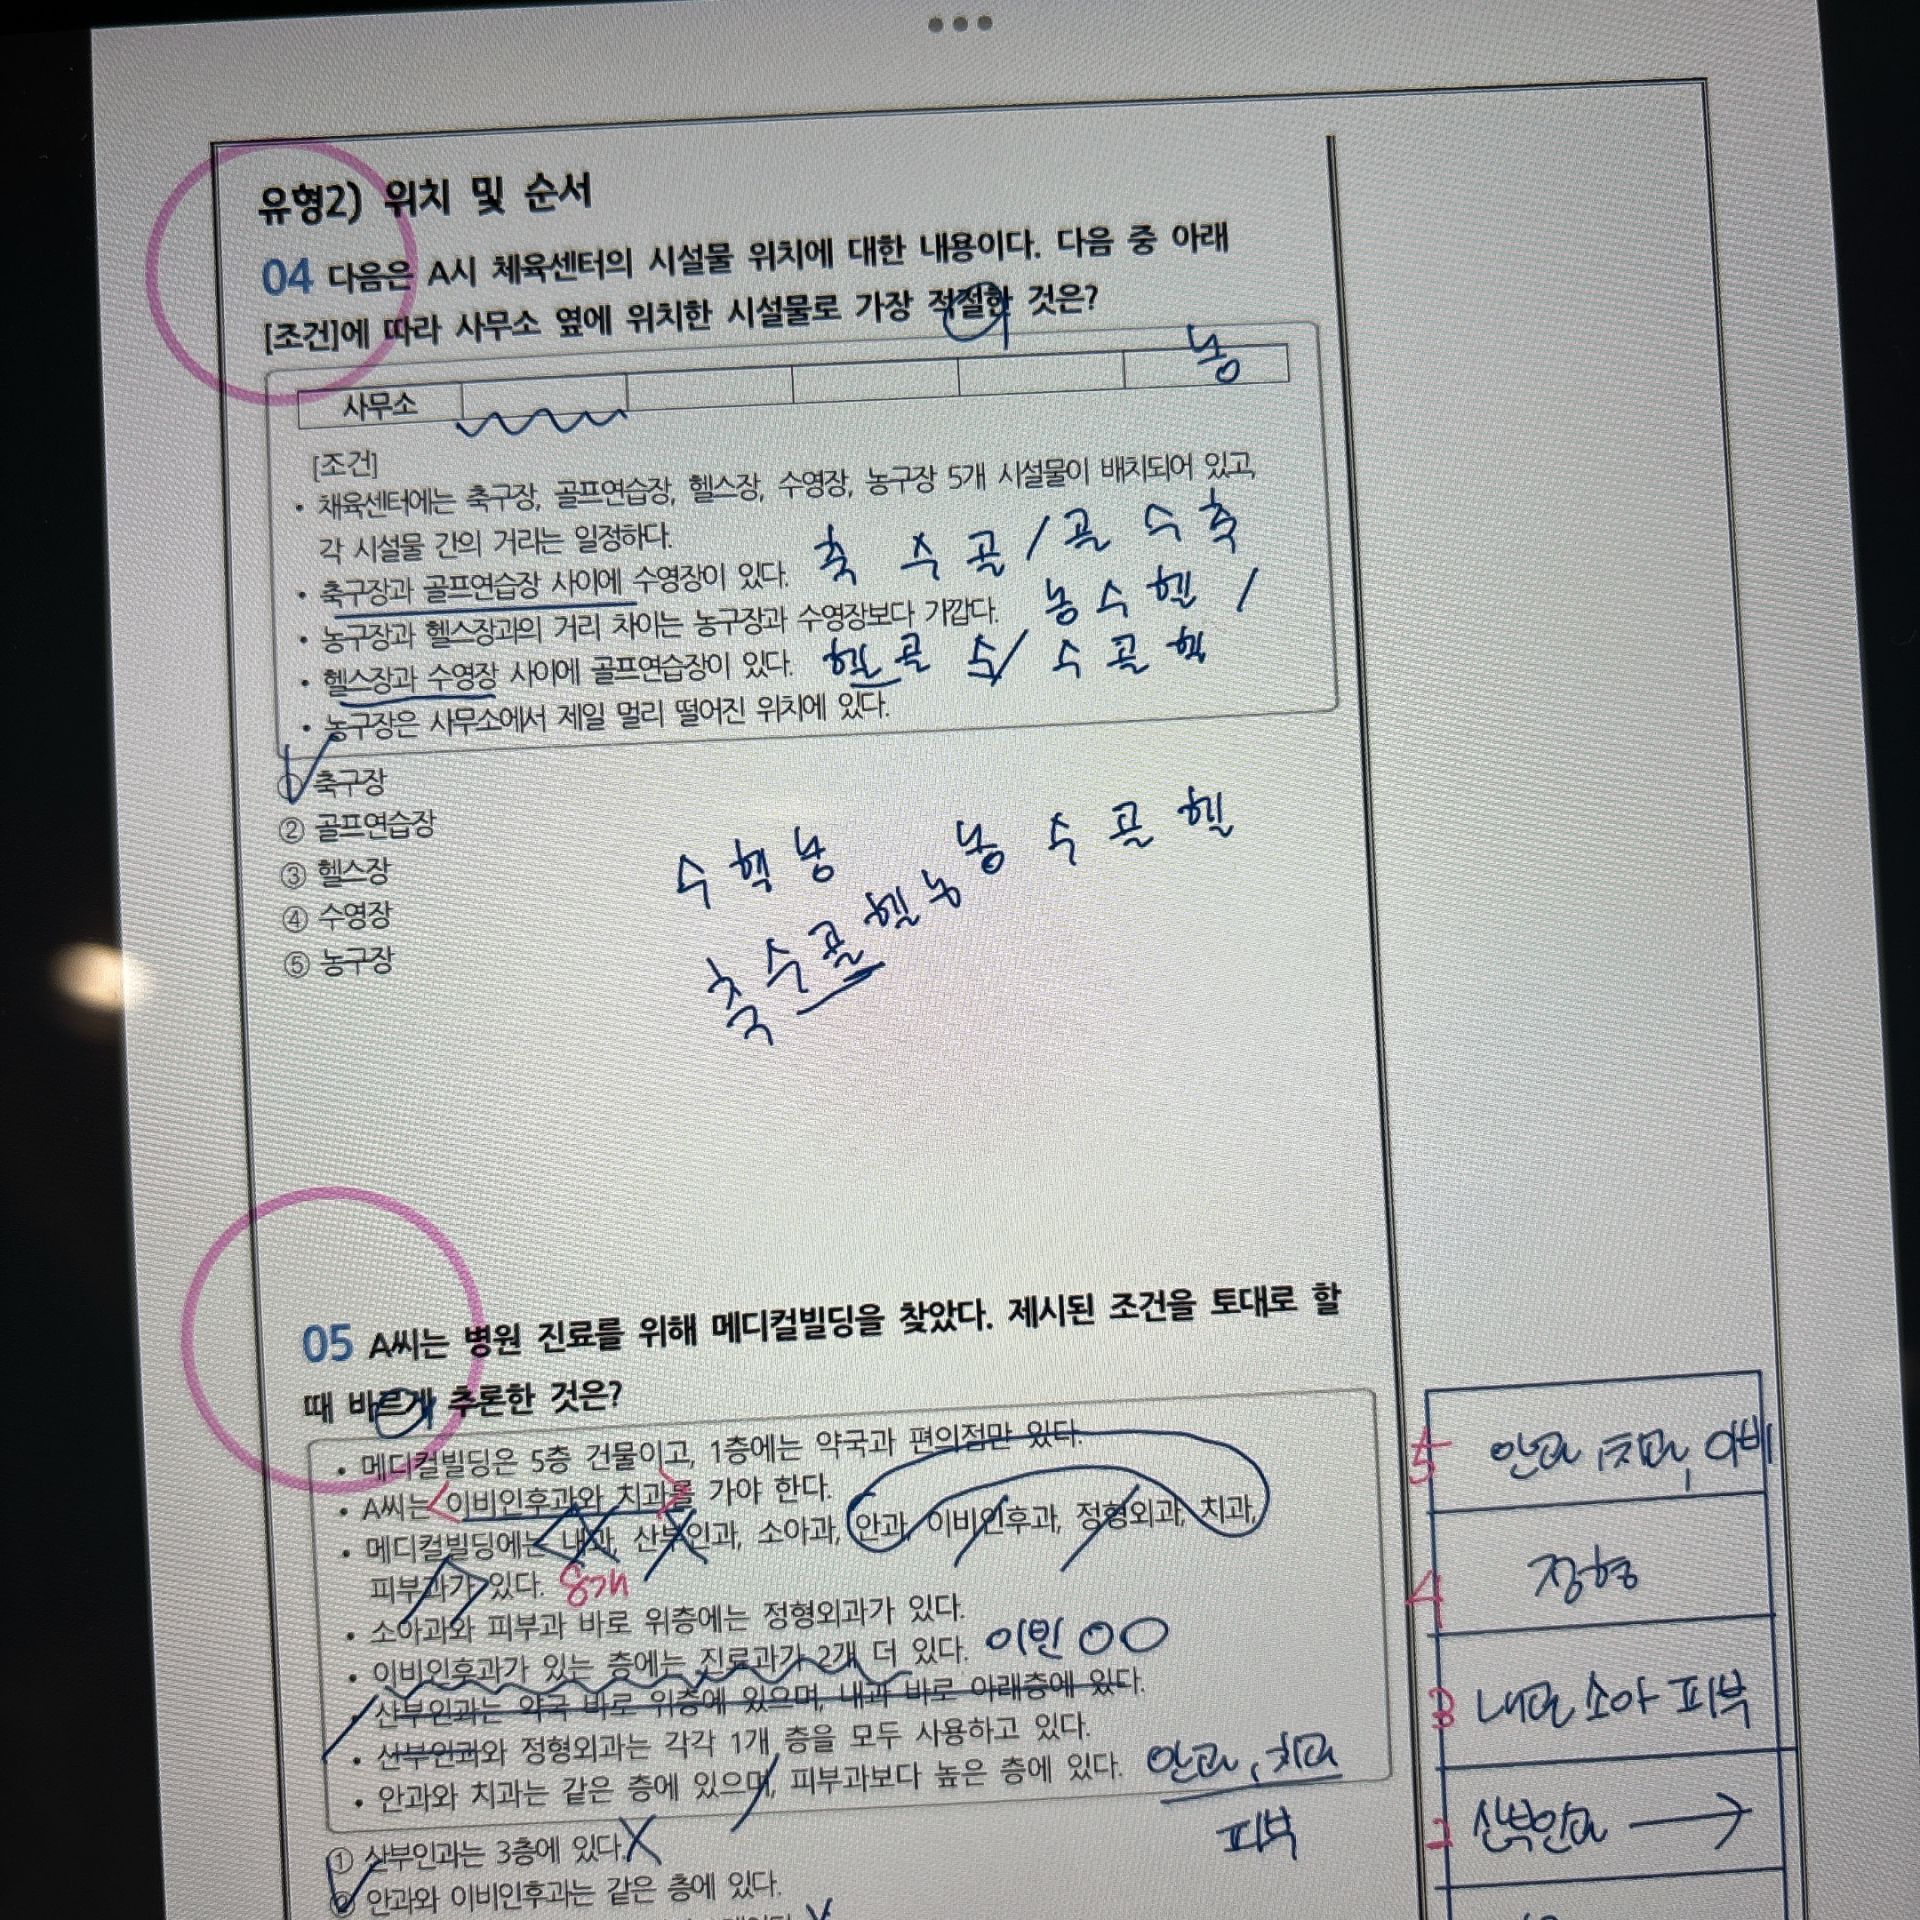 유형2) 위치 및 순서
04 다음은 A시 체육센터의 시설물 위치에 대한 내용이다. 다음 중 아래
[조건]에 따라 사무소 옆에 위치한 시설물로 가장 적절한 것은?
사무소 농
[조건]
• 채육센터에는 축구장, 골프연습장, 헬스장, 수영장, 농구장 5개 시설물이 배치되어 있고,
각 시설물 간의 거리는 일정하다.
• 축구장과 골프연습장 사이에 수영장이 있다. 축 수 골 / 골 수 축
• 농구장과 헬스장과의 거리 차이는 농구장과 수영장보다 가깝다. 농 수 헬 /
• 헬스장과 수영장 사이에 골프연습장이 있다. 헬 골 수 / 수 골 헬
• 농구장은 사무소에서 제일 멀리 떨어진 위치에 있다.
① 축구장
② 골프연습장
③ 헬스장
④ 수영장
⑤ 농구장
수 헬 농
농 수 골 헬
축 수 골 헬 농
05 A씨는 병원 진료를 위해 메디컬빌딩을 찾았다. 제시된 조건을 토대로 할
때 바르게 추론한 것은?
• 메디컬빌딩은 5층 건물이고, 1층에는 약국과 편의점만 있다.
• A씨는 이비인후과와 치과를 가야 한다.
• 메디컬빌딩에는 내과, 산부인과, 소아과, 안과, 이비인후과, 정형외과, 치과,
피부과가 있다. 8개
• 소아과와 피부과 바로 위층에는 정형외과가 있다.
• 이비인후과가 있는 층에는 진료과가 2개 더 있다. 이빈 ○○
• 산부인과는 약국 바로 위층에 있으며, 내과 바로 아래층에 있다.
• 산부인과와 정형외과는 각각 1개 층을 모두 사용하고 있다.
• 안과와 치과는 같은 층에 있으며, 피부과보다 높은 층에 있다. 안과, 치과
피부
① 산부인과는 3층에 있다. X
② 안과와 이비인후과는 같은 층에 있다.
5 안과, 치과, 이비
4 정형
3 내과 소아 피부
2 산부인과 →